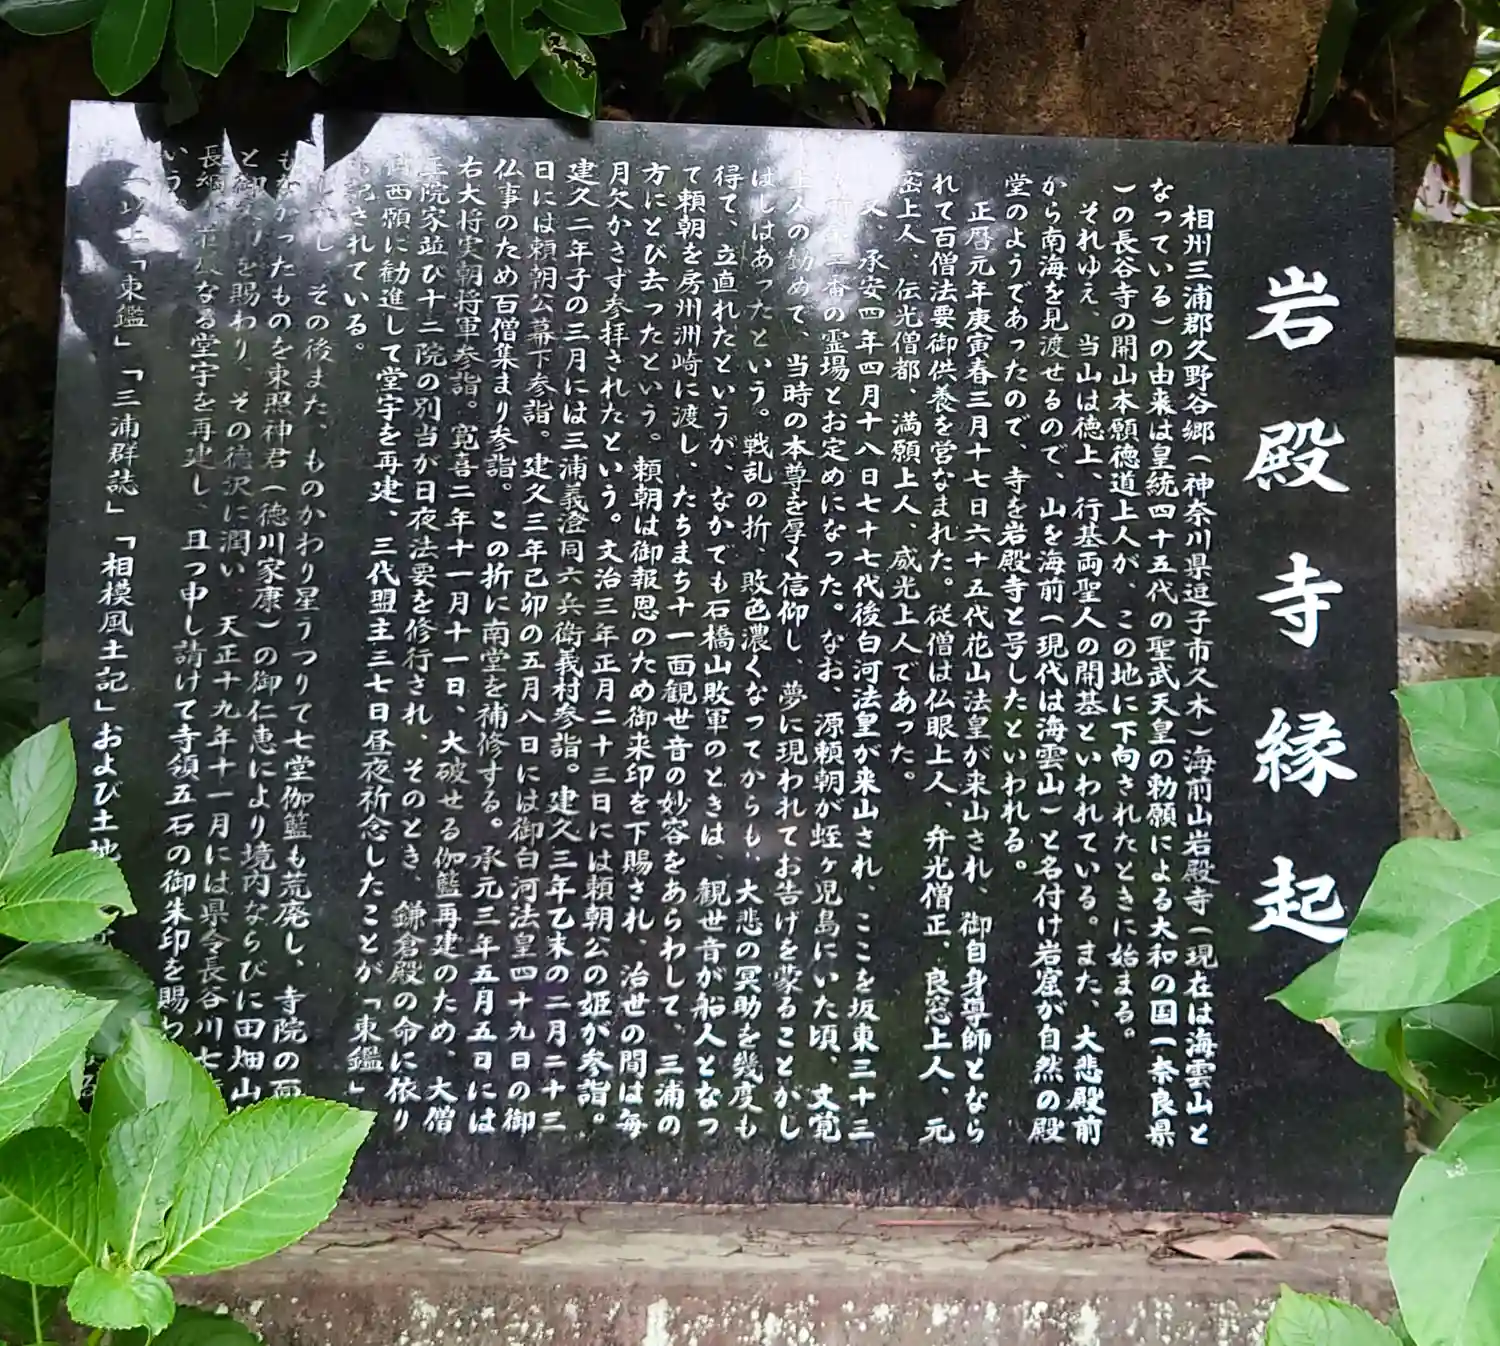 岩殿寺縁起
相州三浦郡久野谷郷(神奈川県逗子市久木)海前山岩殿寺(現在は海雲山と
なっている)の由来は皇統四十五代の聖武天皇の勅願による大和の国(奈良県
)の長谷寺の開山本願徳道上人が、この地に下向されたときに始まる。
それゆえ、当山は徳上、行基両聖人の開基といわれている。また、大悲殿前
から南海を見渡せるので、山を海前(現代は海雲山)と名付け岩窟が自然の殿
堂のようであったので、寺を岩殿寺と号したといわれる。
正暦元年庚寅春三月十七日六十五代花山法皇が来山され、御自身導師となら
れて百僧法要御供養を営なまれた。従僧は仏眼上人、弁光僧正、良窓上人、元
密上人、伝光僧都、満願上人、威光上人であった。
又、承安四年四月十八日七十七代後白河法皇が来山され、ここを坂東三十三
番の霊場とお定めになった。なお、源頼朝が蛭ヶ児島にいた頃、文覚
上人の勧めで、当時の本尊を厚く信仰し、夢に現われてお告げを蒙ることがし
ばしばあったという。戦乱の折、敗色濃くなってからも、大悲の冥助を幾度も
得て、立直れたというが、なかでも石橋山敗軍のときは、観世音が船人となっ
て頼朝を房州洲崎に渡し、たちまち十一面観世音の妙容をあらわして、三浦の
方にとび去ったという。頼朝は御報恩のため御来印を下賜され、治世の間は毎
月欠かさず参拝されたという。文治三年正月二十三日には頼朝公の姫が参詣。
建久二年子の三月には三浦義澄同六兵衛義村参詣。建久三年乙未の二月二十三
日には頼朝公幕下参詣。建久三年己卯の五月八日には御白河法皇四十九日の御
仏事のため百僧集まり参詣。この折に南堂を補修する。承元三年五月五日には
右大将実朝将軍参詣。寛喜二年十一月十一日、大破せる伽籃再建のため、大僧
正院家並び十二院の別当が日夜法要を修行され、そのとき、鎌倉殿の命に依り
西願に勧進して堂宇を再建、三代盟主三七日昼夜祈念したことが「東鑑」
記されている。
し、その後また、ものかわり星うつりて七堂伽籃も荒廃し、寺院の面
かったものを東照神君(徳川家康)の御仁恵により境内ならびに田畑山
と御 を賜わり、その徳沢に潤い、天正十九年十一月には県令長谷川七
長綱 なる堂宇を再建し、且つ申し請けて寺領五石の御朱印を賜わ
いう
以上「東鑑」「三浦群誌」「相模風土記」および土地